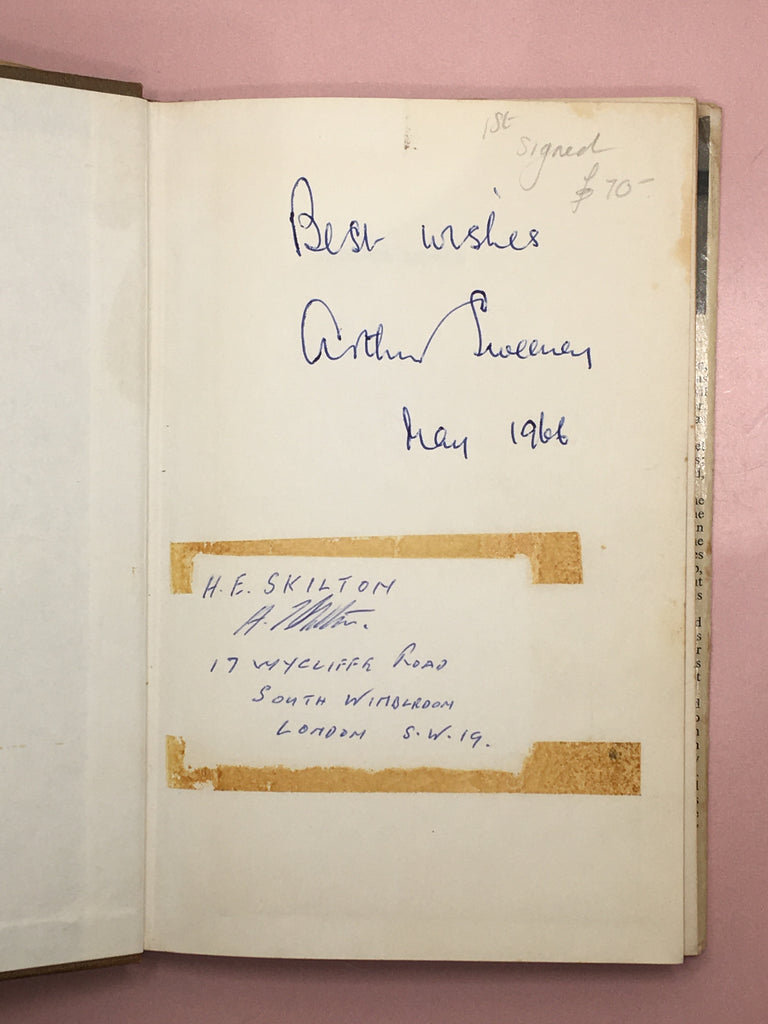 1st
signed
$70-
Best wishes
Arthur Sweeney
May 1966
H. E. SKILTON
H. Skilton.
17 WYCLIFFE ROAD
SOUTH WIMBLEDON
LONDON S.W.19.